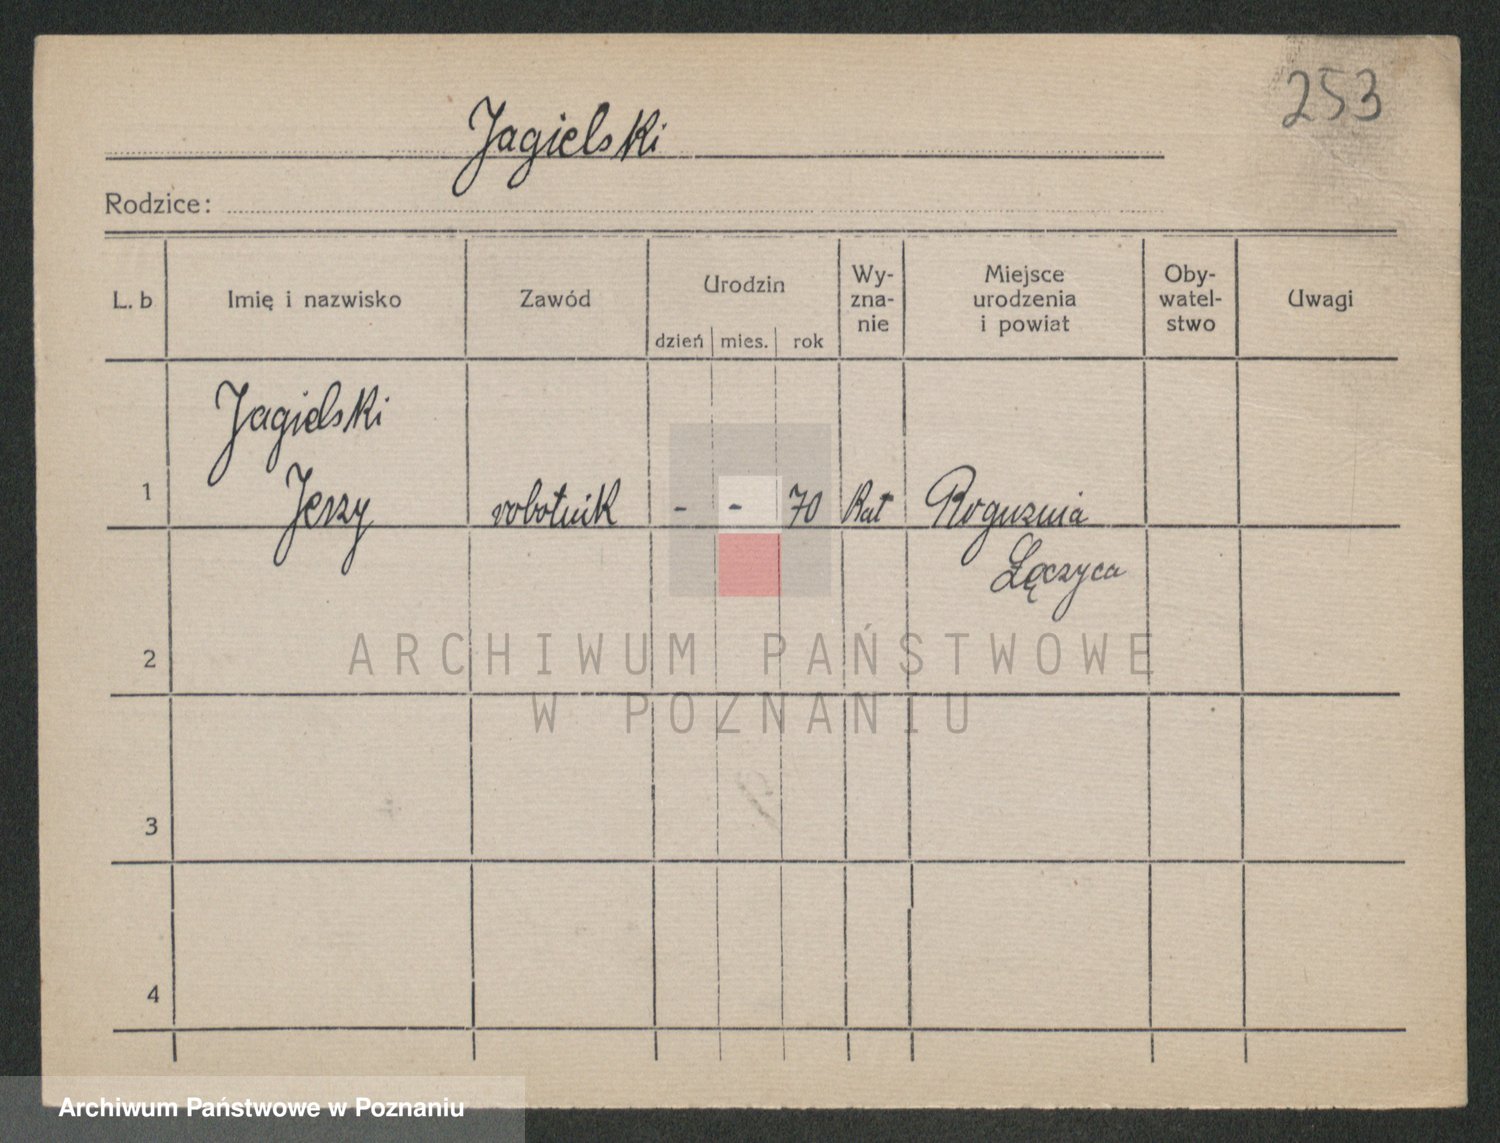 253
Jagielski
Rodzice:
L. b
Imię i nazwisko
Zawód
Urodzin
dzień
mies.
rok
Wy-
zna-
nie
Miejsce
urodzenia
i powiat
Oby-
watel-
stwo
Uwagi
1
Jagielski
Jerzy
robotnik
-
-
70
Kat
Roguznia
Łęczyca
2
3
4
ARCHIWUM PAŃSTWOWE
W POZNANIU
Archiwum Państwowe w Poznaniu